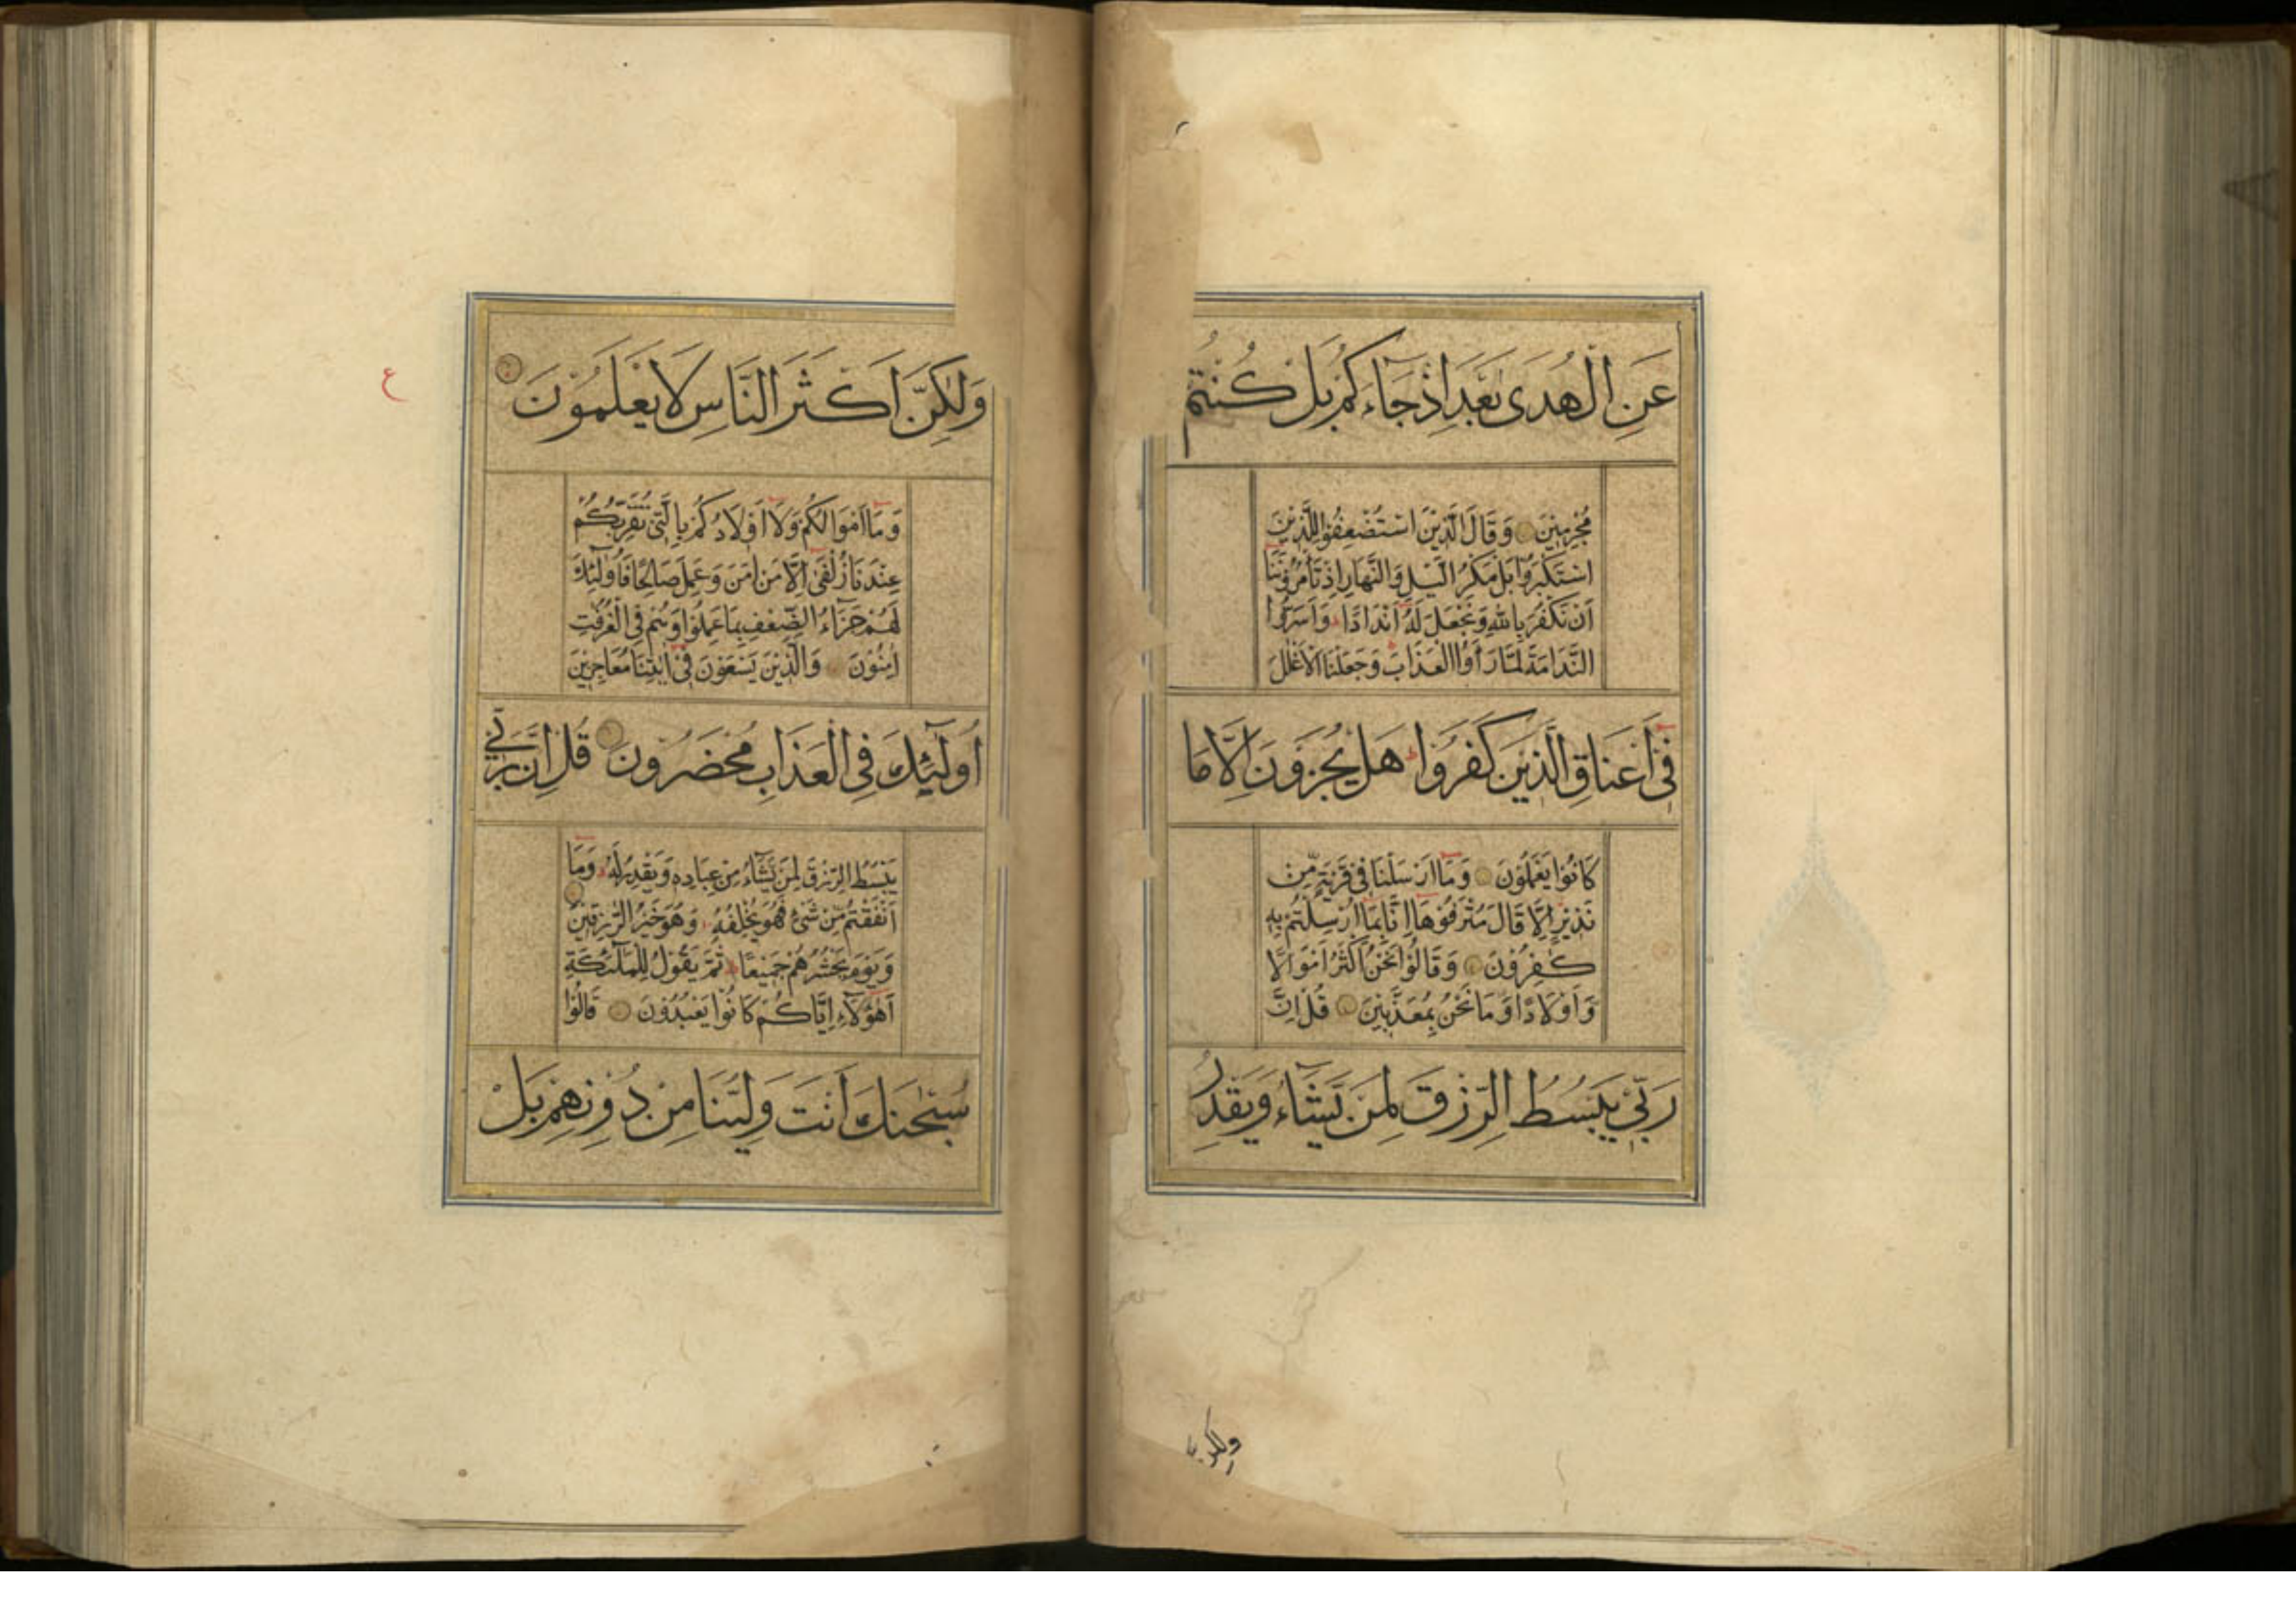 عَنِ الْهُدَى بَعْدَ اِذْ جَاۤءَكُمْ بَلْ كُنْتُمْ
مُجْرِمِيْنَ وَقَالَ الَّذِيْنَ اسْتُضْعِفُوْا لِلَّذِيْنَ
اسْتَكْبَرُوْا بَلْ مَكْرُ الَّيْلِ وَالنَّهَارِ اِذْ تَأْمُرُوْنَنَا
اَنْ نَكْفُرَ بِاللّٰهِ وَنَجْعَلَ لَهُ اَنْدَادًا وَاَسَرُّوا
النَّدَامَةَ لَمَّا رَاَوُا الْعَذَابَ وَجَعَلْنَا الْاَغْلٰلَ
فِىْ اَعْنَاقِ الَّذِيْنَ كَفَرُوْا هَلْ يُجْزَوْنَ اِلَّا مَا
كَانُوْا يَعْمَلُوْنَ وَمَا اَرْسَلْنَا فِىْ قَرْيَةٍ مِّنْ
نَذِيْرٍ اِلَّا قَالَ مُتْرَفُوْهَا اِنَّا بِمَا اُرْسِلْتُمْ بِهٖ
كٰفِرُوْنَ وَقَالُوْا نَحْنُ اَكْثَرُ اَمْوَالًا
وَاَوْلَادًا وَمَا نَحْنُ بِمُعَذَّبِيْنَ قُلْ اِنَّ
رَبِّىْ يَبْسُطُ الرِّزْقَ لِمَنْ يَّشَاۤءُ وَيَقْدِرُ
ولكن
وَلٰكِنَّ اَكْثَرَ النَّاسِ لَا يَعْلَمُوْنَ
ع
وَمَا اَمْوَالُكُمْ وَلَا اَوْلَادُكُمْ بِالَّتِىْ تُقَرِّبُكُمْ
عِنْدَنَا زُلْفٰى اِلَّا مَنْ اٰمَنَ وَعَمِلَ صَالِحًا فَاُولٰۤئِكَ
لَهُمْ جَزَاۤءُ الضِّعْفِ بِمَا عَمِلُوْا وَهُمْ فِى الْغُرُفٰتِ
اٰمِنُوْنَ وَالَّذِيْنَ يَسْعَوْنَ فِىْ اٰيٰتِنَا مُعَاجِزِيْنَ
اُولٰۤئِكَ فِى الْعَذَابِ مُحْضَرُوْنَ قُلْ اِنَّ رَبِّىْ
يَبْسُطُ الرِّزْقَ لِمَنْ يَّشَاۤءُ مِنْ عِبَادِهٖ وَيَقْدِرُ لَهُ وَمَا
اَنْفَقْتُمْ مِّنْ شَىْءٍ فَهُوَ يُخْلِفُهٗ وَهُوَ خَيْرُ الرّٰزِقِيْنَ
وَيَوْمَ يَحْشُرُهُمْ جَمِيْعًا ثُمَّ يَقُوْلُ لِلْمَلٰۤئِكَةِ
اَهٰۤؤُلَاۤءِ اِيَّاكُمْ كَانُوْا يَعْبُدُوْنَ قَالُوْا
سُبْحٰنَكَ اَنْتَ وَلِيُّنَا مِنْ دُوْنِهِمْ بَلْ